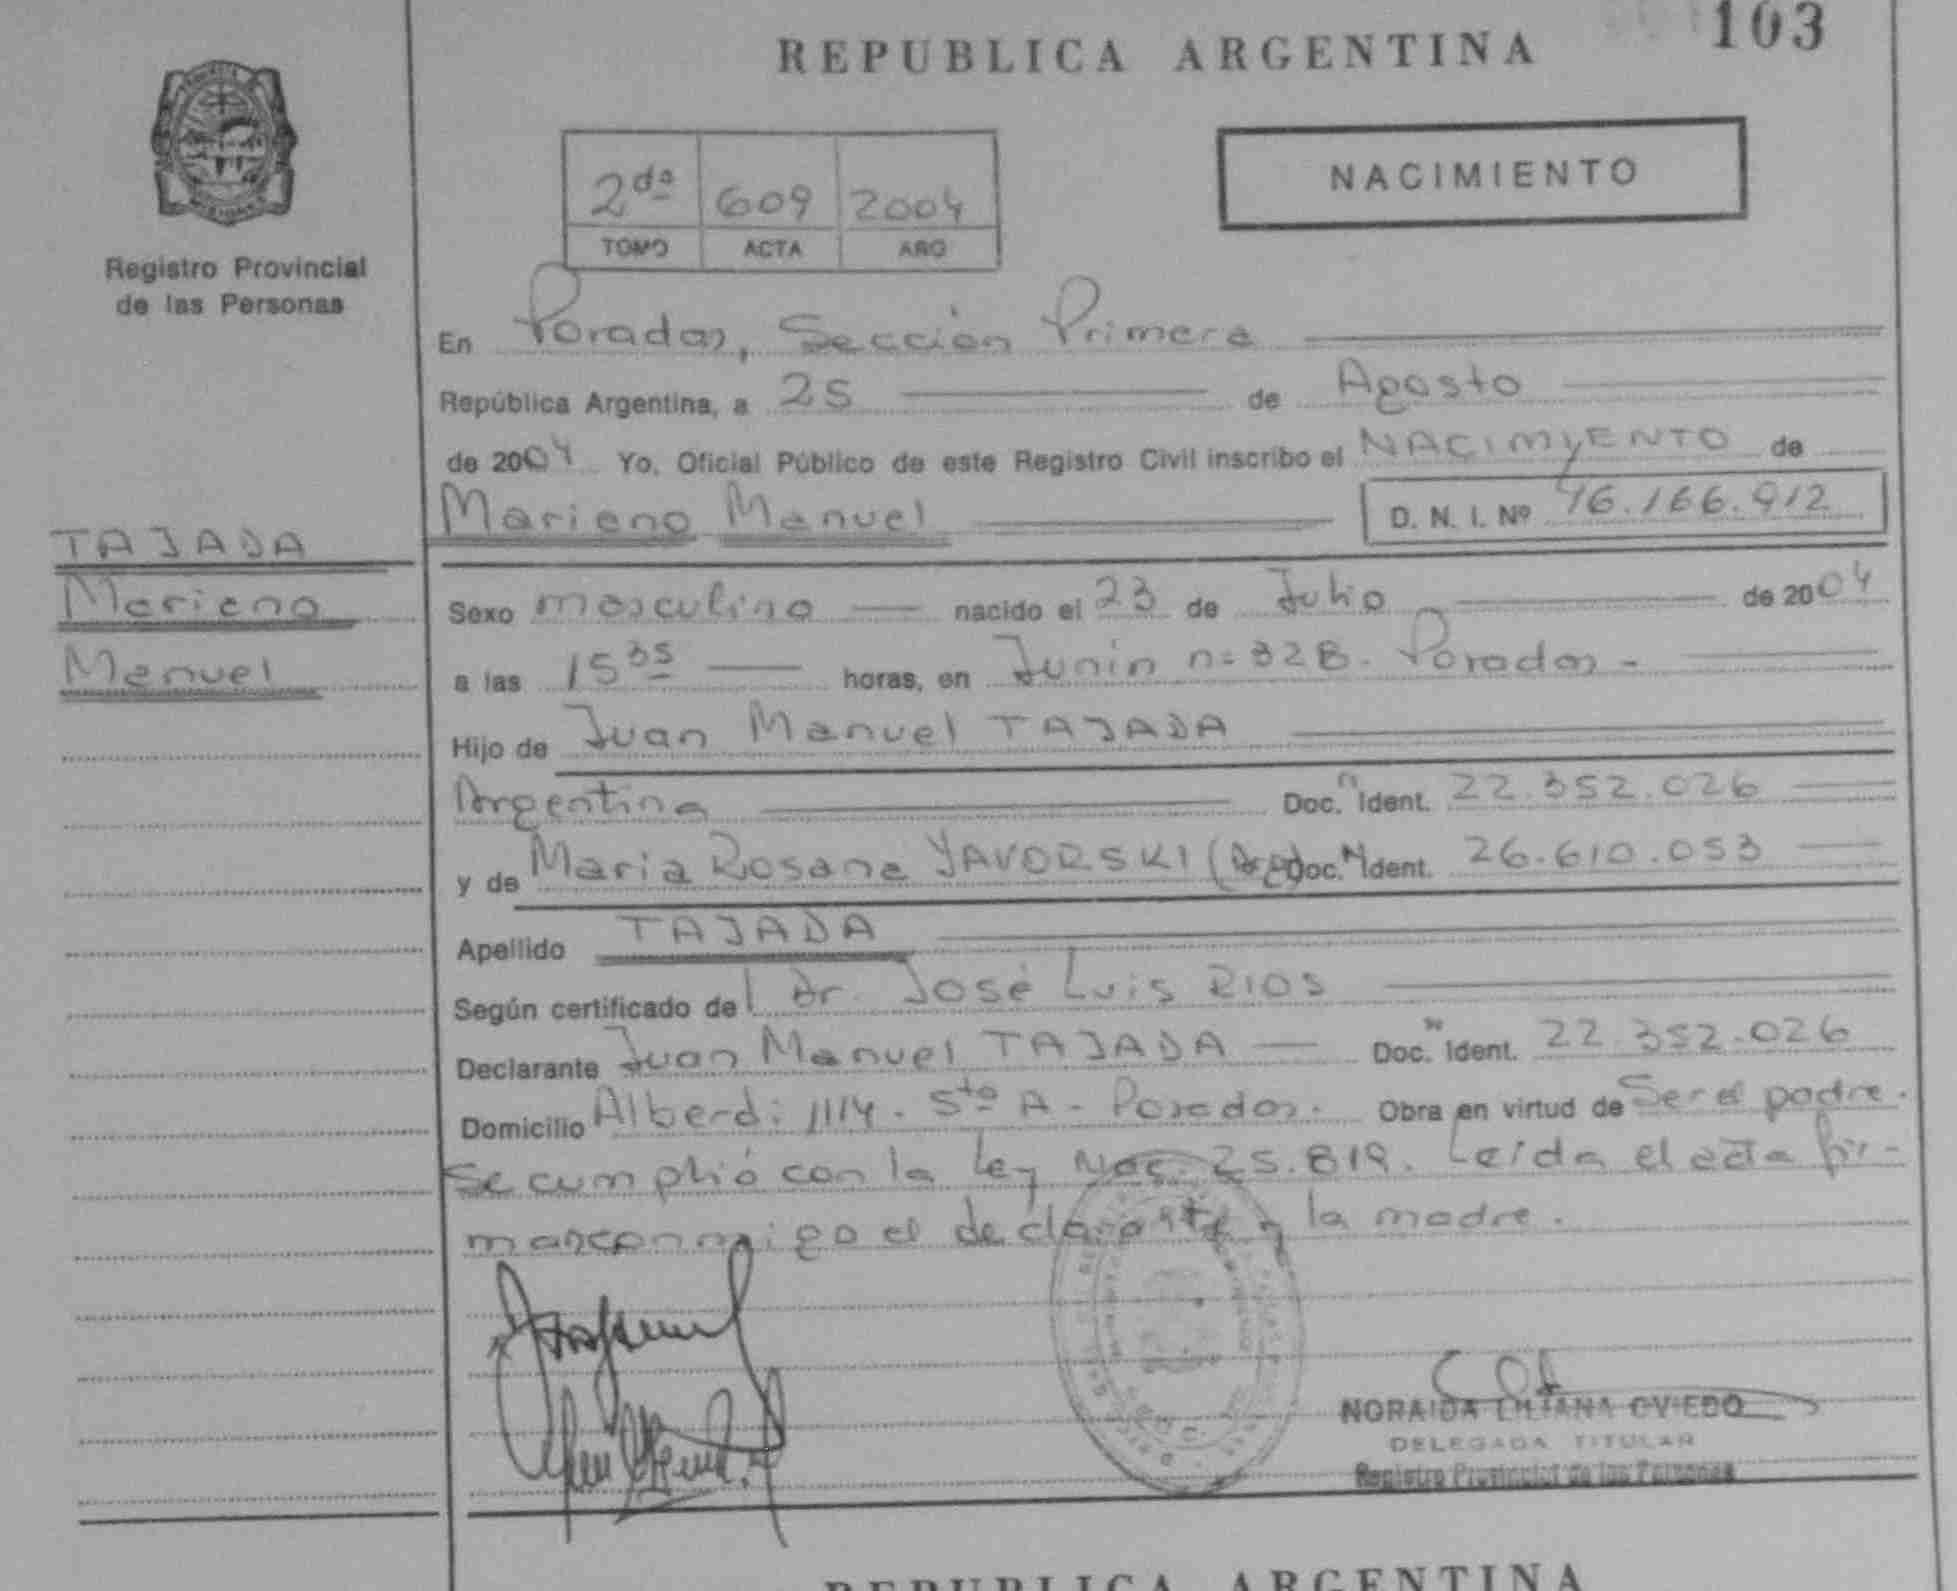 103
REPUBLICA ARGENTINA
NACIMIENTO
2da 609 2004
TOMO ACTA AÑO
Registro Provincial
de las Personas
En Posadas, Sección Primera
República Argentina, a 25 de Agosto
de 2004 Yo, Oficial Público de este Registro Civil inscribo el NACIMIENTO de
Mariano Manuel D. N. I. Nº 46.166.912
TAJADA
Mariano
Manuel
Sexo masculino nacido el 23 de Julio de 2004
a las 15 35 horas, en Junín nº 328. Posadas -
Hijo de Juan Manuel TAJADA
Argentina Doc. Ident. 22.352.026
y de Maria Rosana YAVORSKI (Arg) Doc. Ident. 26.610.053
Apellido TAJADA
Según certificado del Dr. José Luis RIOS
Declarante Juan Manuel TAJADA Doc. Ident. 22.352.026
Domicilio Alberdi 1114. 5to A - Posadas. Obra en virtud de Ser el padre.
Se cumplió con la Ley Nac. 25.819. Leída el acta fir-
man conmigo el declarante y la madre.
NORAIDA LILIANA OVIEDO
DELEGADA TITULAR
Registro Provincial de las Personas
REPUBLICA ARGENTINA